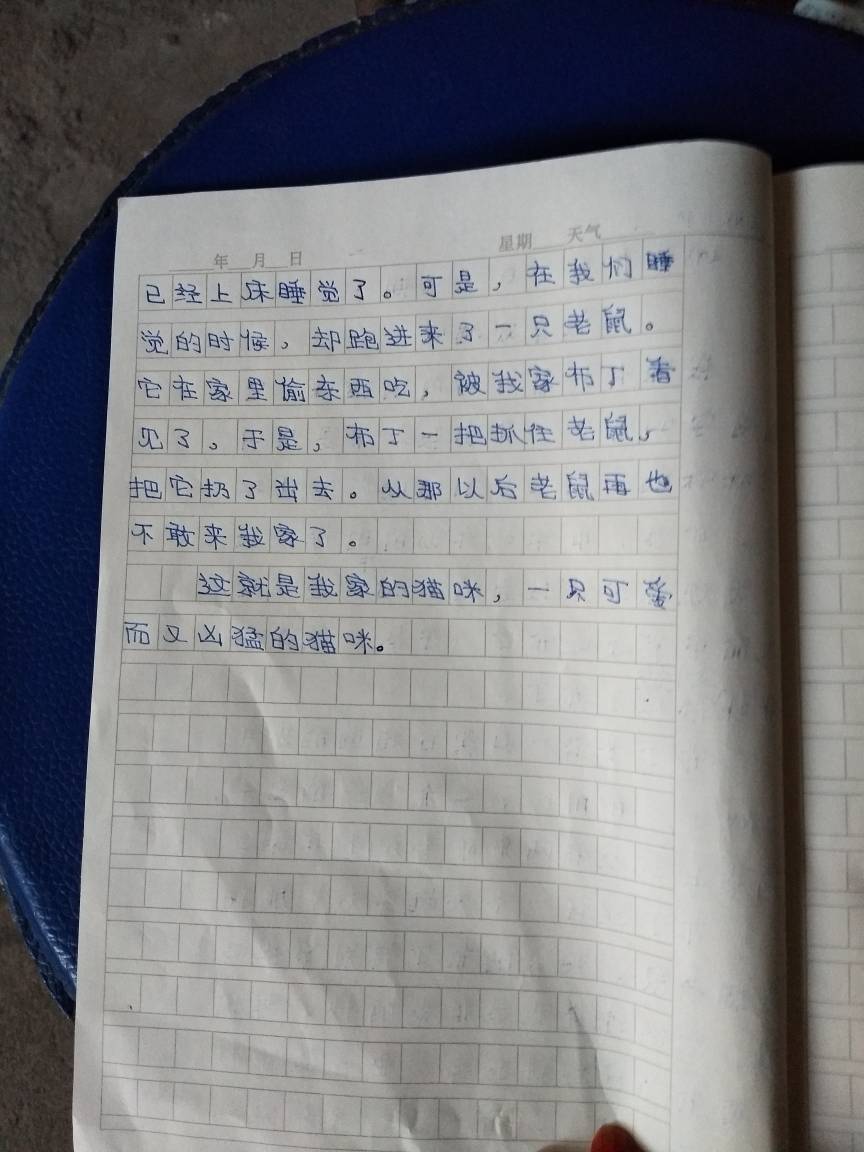 年 月 日 星期 天气
已经上床睡觉了。可是，在我们睡
觉的时候，却跑进来了一只老鼠。
它在家里偷东西吃，被我家布丁看
见了，于是，布丁一把抓住老鼠，
把它扔了出去。从那以后老鼠再也
不敢来我家了。
这就是我家的猫咪，一只可爱
而又凶猛的猫咪。